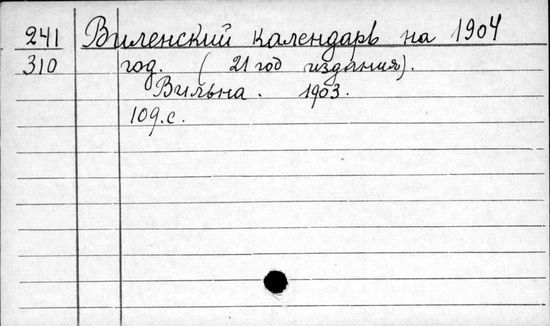 241 Виленский календарь на 1904
310 год. (21 год издания).
Вильна. 1903.
109.с.